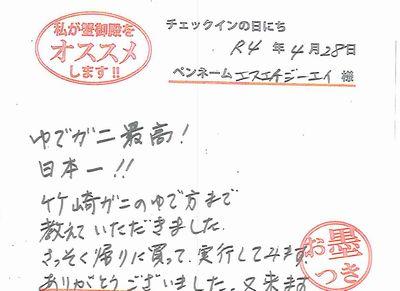 私が蟹御殿を
オススメ
します!!
チェックインの日にち
R4年4月28日
ペンネーム エスエイチジーエイ 様
ゆでガニ最高!
日本一!!
竹崎ガニのゆで方まで
教えていただきました.
さっそく帰りに買って、実行してみます
ありがとうございました。又来ます
お墨
つき